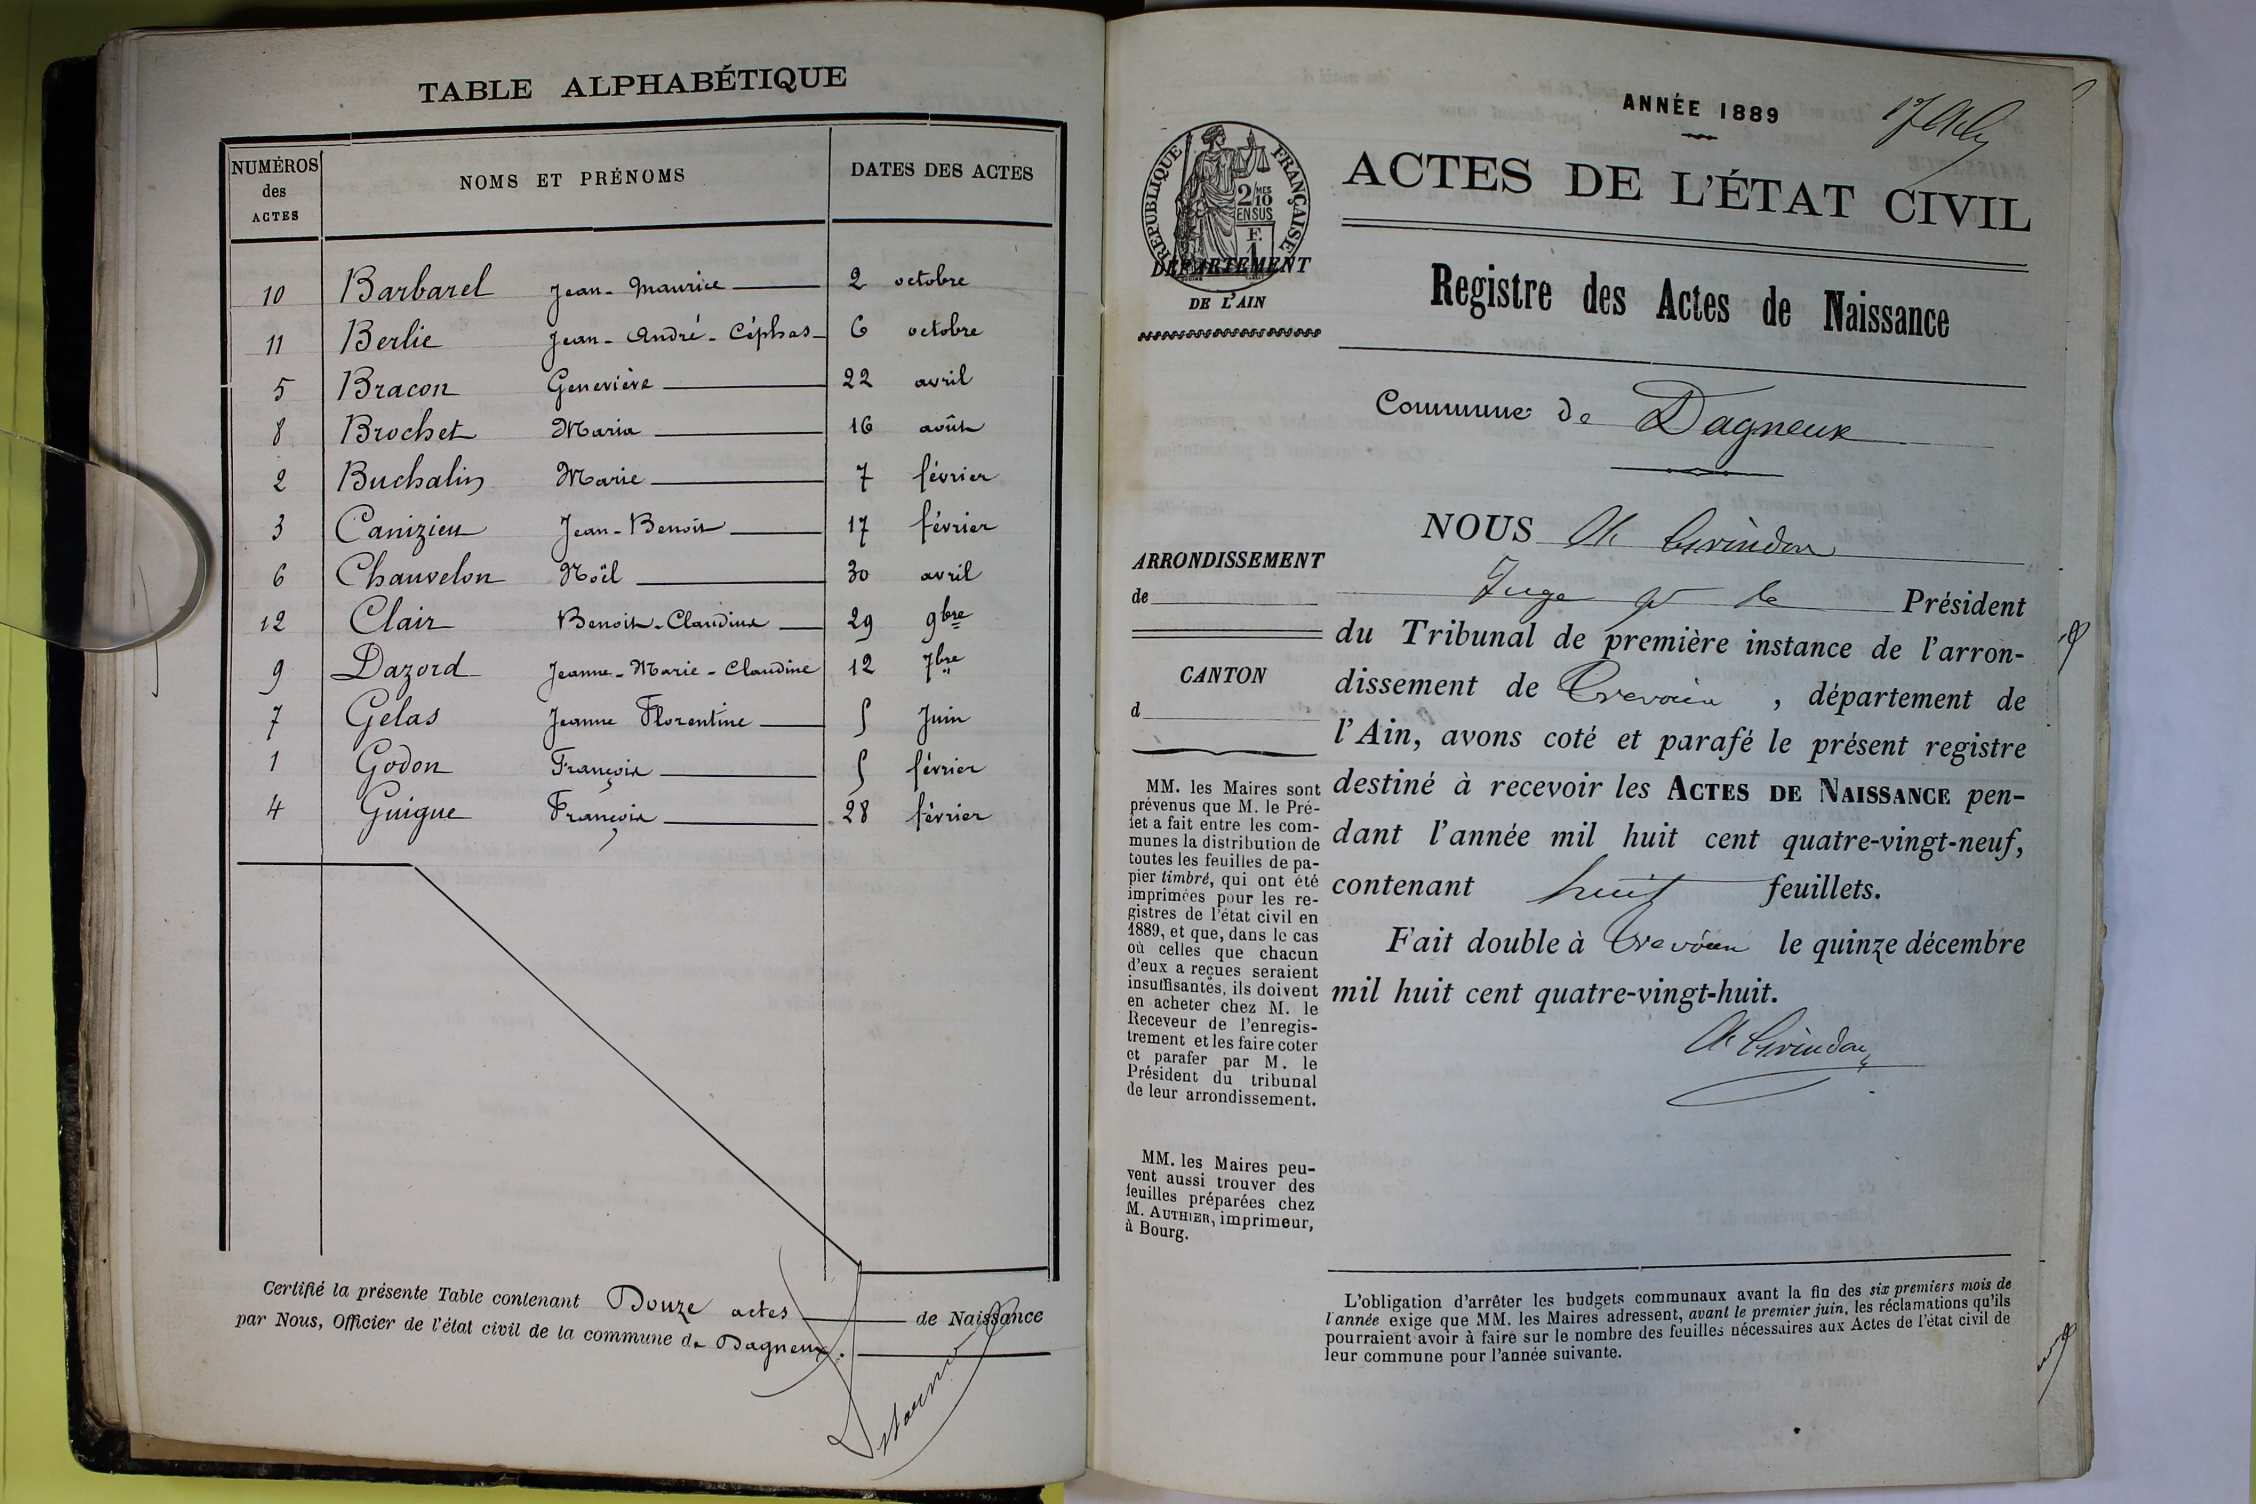 TABLE ALPHABÉTIQUE
NUMÉROS des ACTES NOMS ET PRÉNOMS DATES DES ACTES
10 Barbarel Jean-Maurice 2 octobre
11 Berlie Jean-André-Céphas 6 octobre
5 Bracon Geneviève 22 avril
8 Brochet Maria 16 août
2 Buchalin Marie 7 février
3 Canizieu Jean-Benoit 17 février
6 Chauvelon Noël 30 avril
12 Clair Benoit-Claudius 29 9bre
9 Dazord Jeanne-Marie-Claudine 12 7bre
7 Gelas Jeanne Florentine 5 Juin
1 Godon François 5 février
4 Guigue François 28 février
Certifié la présente Table contenant Douze actes de Naissance
par Nous, Officier de l'état civil de la commune de Dagneux.
ANNÉE 1889
RÉPUBLIQUE FRANÇAISE
2/10 MES
EN SUS
F.
1
DÉPARTEMENT
DE L'AIN
ACTES DE L'ÉTAT CIVIL
Registre des Actes de Naissance
Commune de Dagneux
ARRONDISSEMENT
de
CANTON
d
MM. les Maires sont
prévenus que M. le Pré-
fet a fait entre les com-
munes la distribution de
toutes les feuilles de pa-
pier timbré, qui ont été
imprimées pour les re-
gistres de l'état civil en
1889, et que, dans le cas
où celles que chacun
d'eux a reçues seraient
insuffisantes, ils doivent
en acheter chez M. le
Receveur de l'enregis-
trement et les faire coter
et parafer par M. le
Président du tribunal
de leur arrondissement.
MM. les Maires peu-
vent aussi trouver des
feuilles préparées chez
M. AUTHIER, imprimeur,
à Bourg.
NOUS
Juge pr le Président
du Tribunal de première instance de l'arron-
dissement de Trévoux, département de
l'Ain, avons coté et parafé le présent registre
destiné à recevoir les ACTES DE NAISSANCE pen-
dant l'année mil huit cent quatre-vingt-neuf,
contenant huit feuillets.
Fait double à Trévoux le quinze décembre
mil huit cent quatre-vingt-huit.
L'obligation d'arrêter les budgets communaux avant la fin des six premiers mois de
l'année exige que MM. les Maires adressent, avant le premier juin, les réclamations qu'ils
pourraient avoir à faire sur le nombre des feuilles nécessaires aux Actes de l'état civil de
leur commune pour l'année suivante.